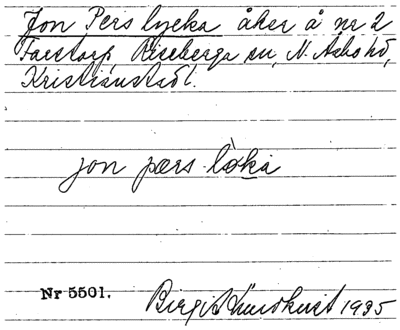 Jon Pers lycka åker å nr 2
Farstorp, Riseberga sn, N. Åsbo hd,
Kristianstad l.
jon pærs lòka
Nr 5501.
Birgit Lundkvist 1935